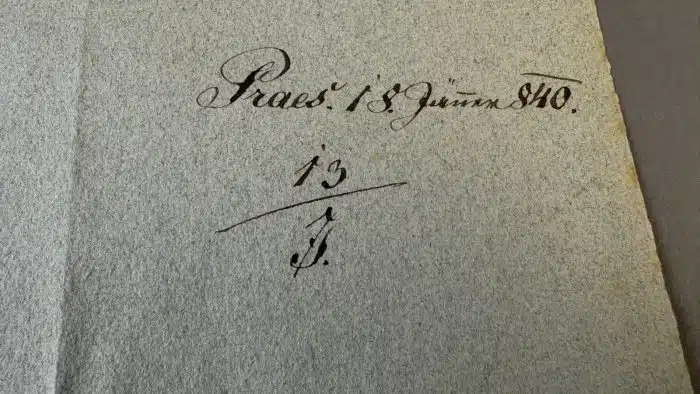 Praes. 18. Jäner 840.
13
J.